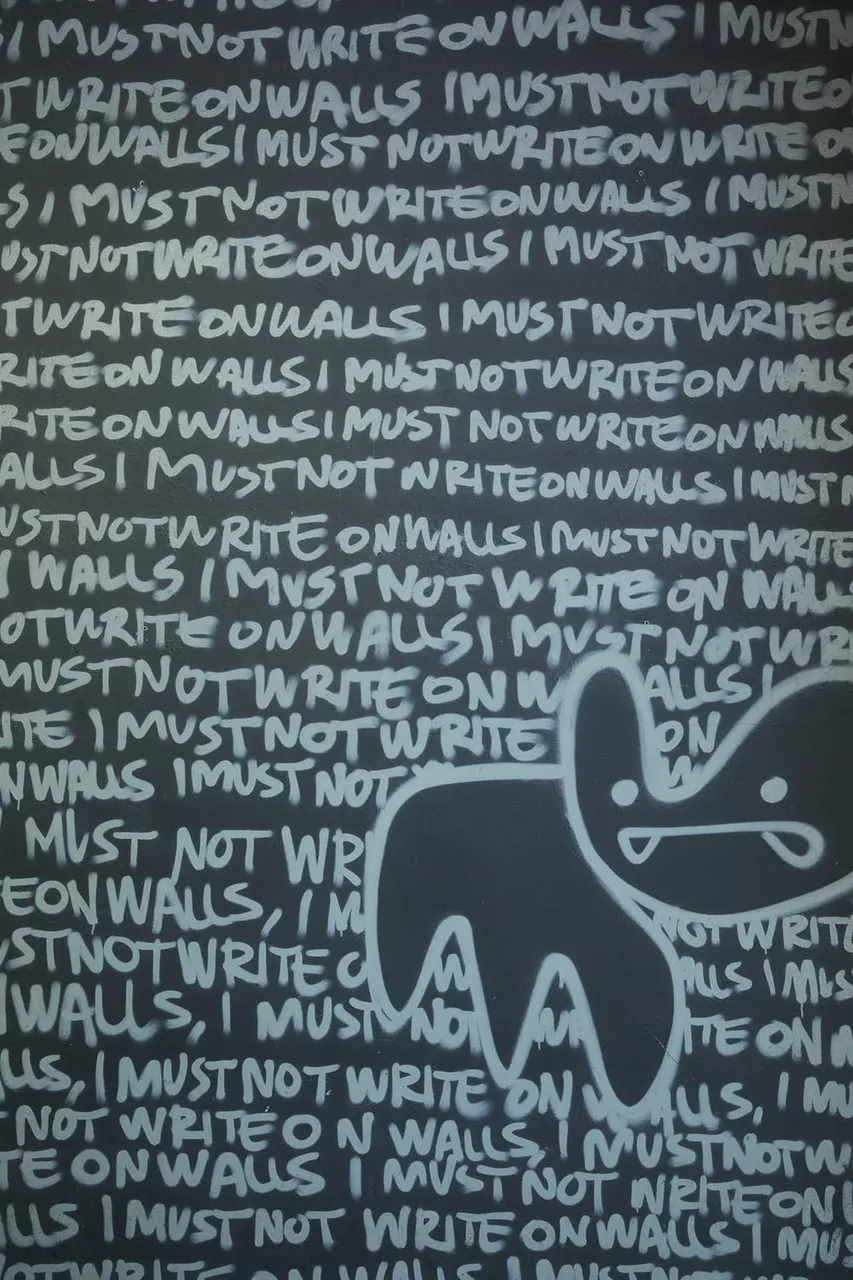 I MUST NOT WRITE ON WALLS I MUST N
T WRITE ON WALLS I MUST NOT WRITE O
E ON WALLS I MUST NOT WRITE ON WRITE O
S I MUST NOT WRITE ON WALLS I MUST N
UST NOT WRITE ON WALLS I MUST NOT WRITE
T WRITE ON WALLS I MUST NOT WRITE O
RITE ON WALLS I MUST NOT WRITE ON WALLS
RITE ON WALLS I MUST NOT WRITE ON WALLS
ALLS I MUST NOT WRITE ON WALLS I MUST N
UST NOT WRITE ON WALLS I MUST NOT WRITE
WALLS I MUST NOT WRITE ON WALLS
OT WRITE ON WALLS I MUST NOT WR
MUST NOT WRITE ON WALLS I
ITE I MUST NOT WRITE ON
N WALLS I MUST NOT W
MUST NOT WRI
E ON WALLS, I M NOT WRITE
UST NOT WRITE O W ALLS I MUS
WALLS, I MUST NOT ITE ON W
LLS, I MUST NOT WRITE ON WALLS, I MU
NOT WRITE ON WALLS, I MUST NOT W
TE ON WALLS I MUST NOT WRITE ON
LLS I MUST NOT WRITE ON WALLS I MUS
OT WRITE ON WALLS I MUST NOT